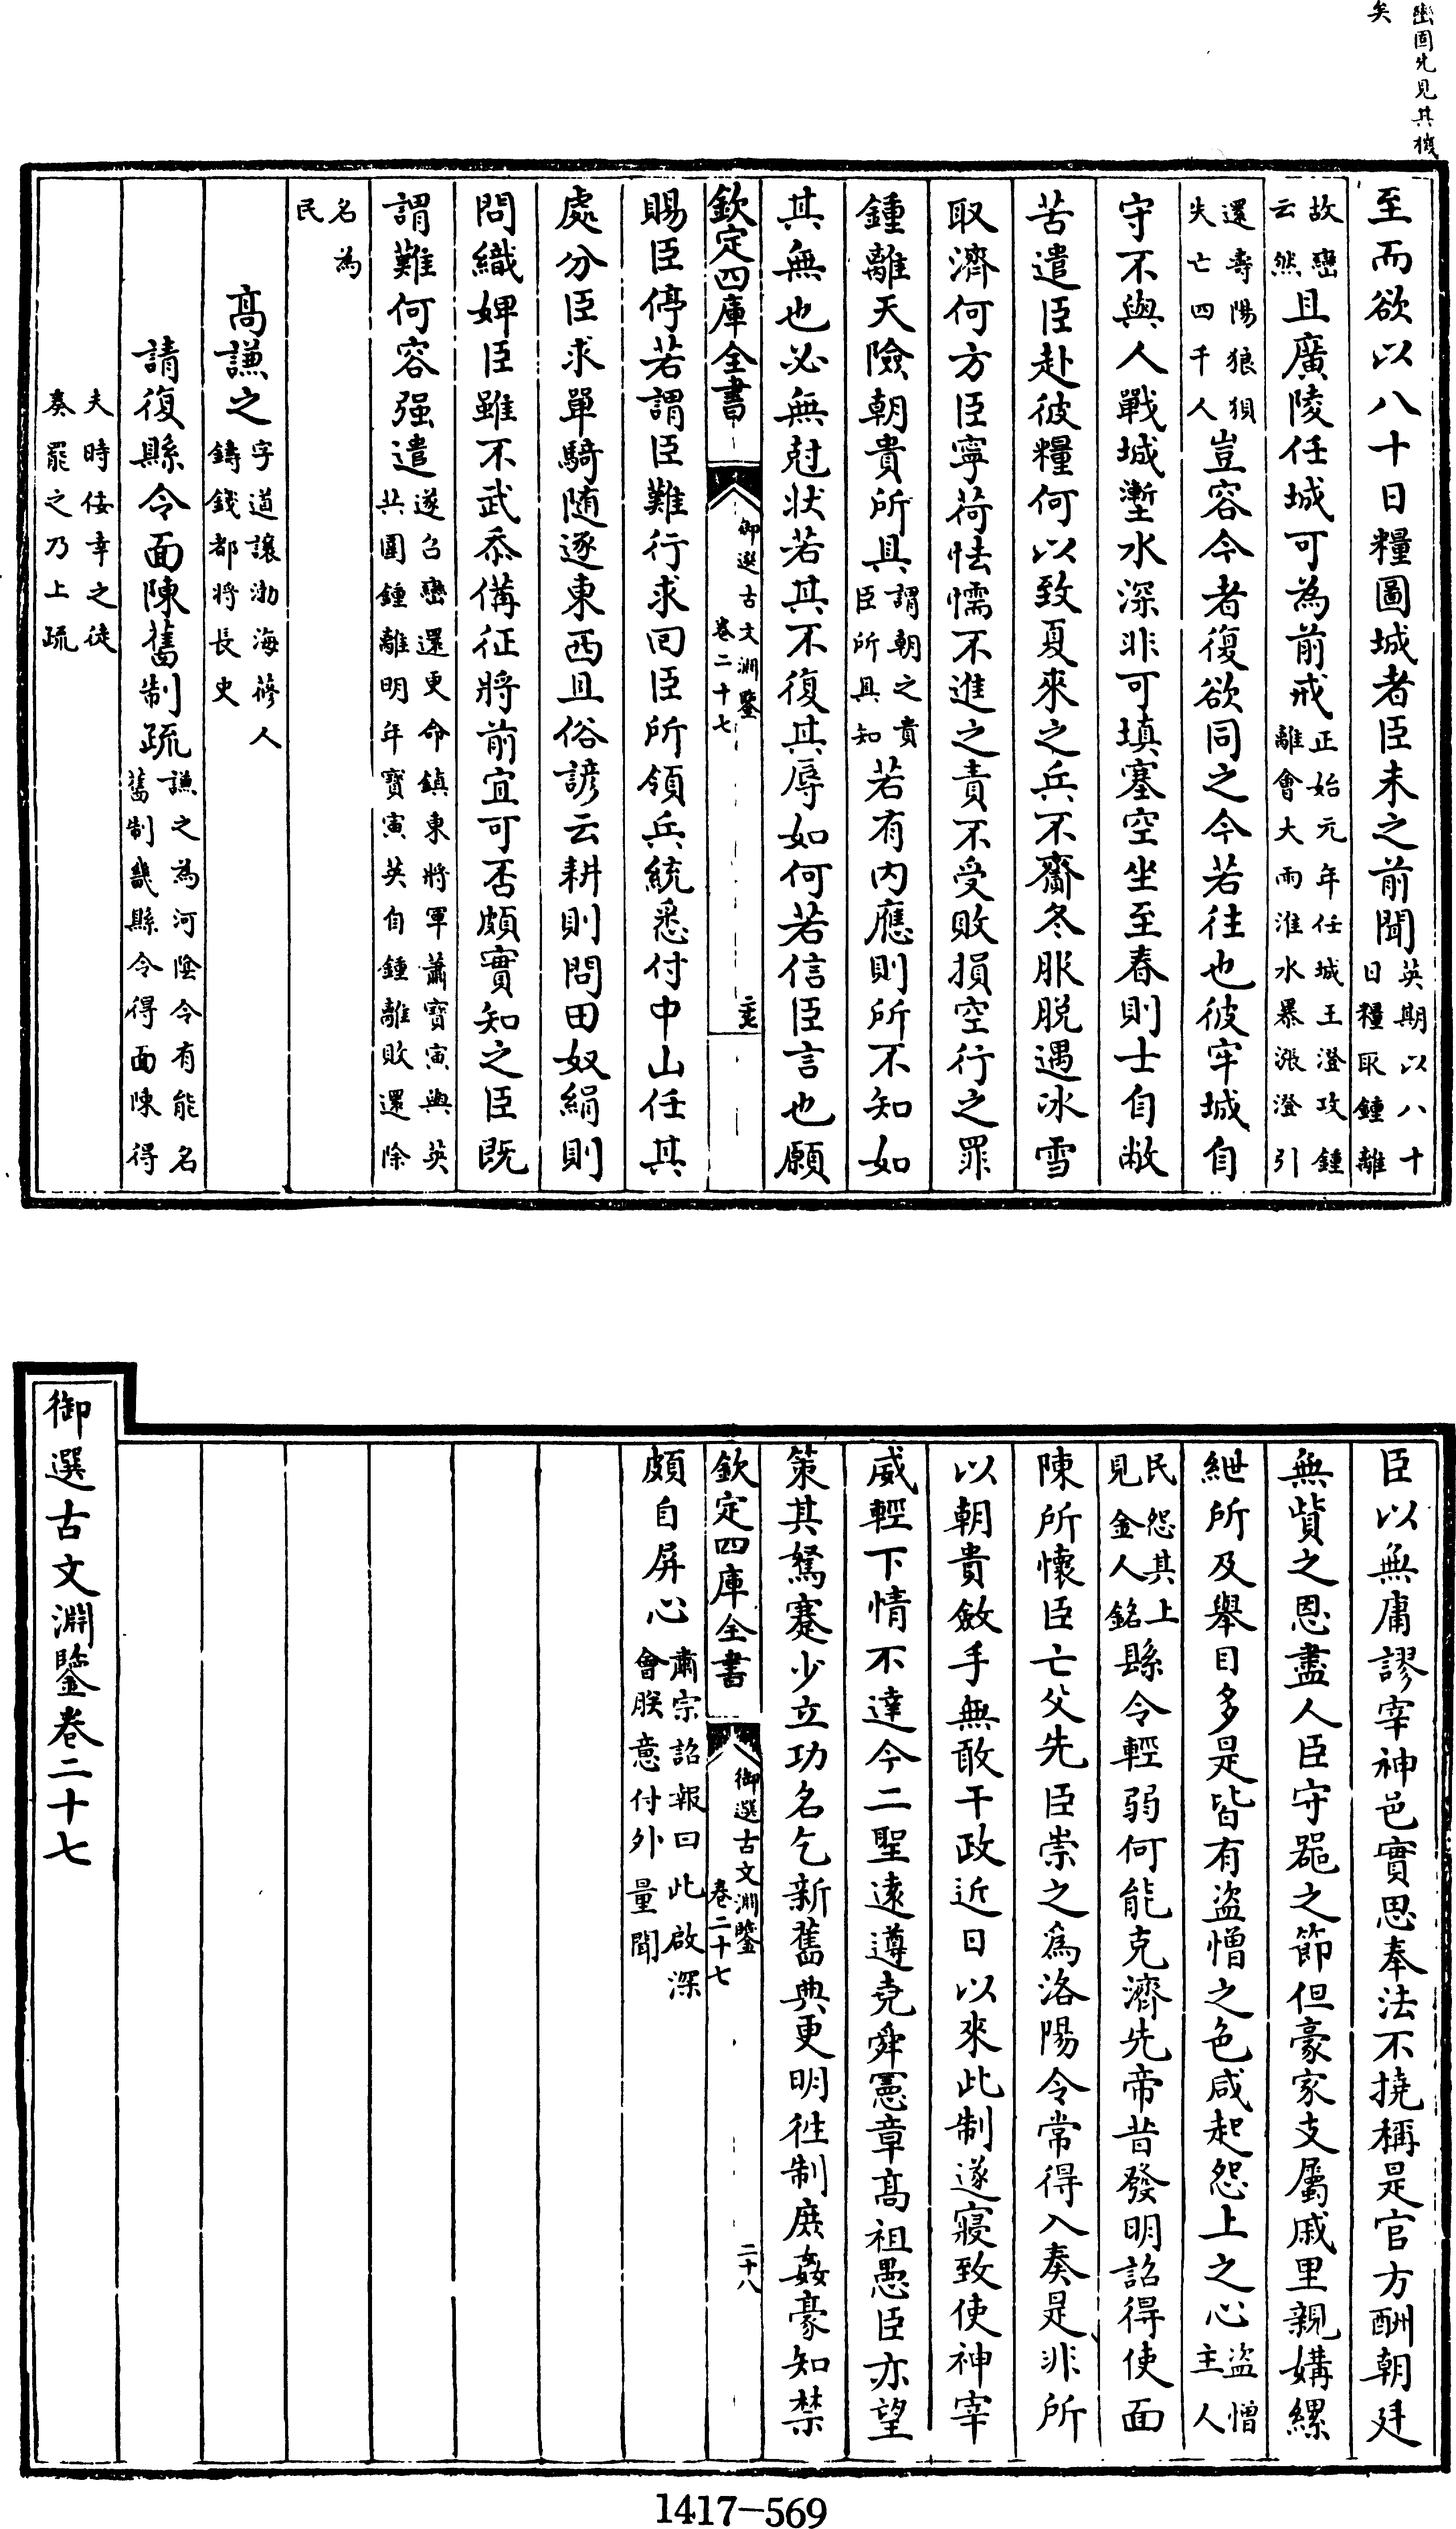 巒固先見其機
矣
至而欲以八十日糧圖城者臣未之前聞英期以八十
日糧取鍾離
故巒
云然且廣陵任城可為前戒正始元年任城王澄攻鍾
離會大雨淮水暴漲澄引
還壽陽狼狽
失亡四千人豈容今者復欲同之今若往也彼牢城自
守不與人戰城塹水深非可填塞空坐至春則士自敝
苦遣臣赴彼糧何以致夏來之兵不齎冬服脱遇冰雪
取濟何方臣寧荷怯懦不進之責不受敗損空行之罪
鍾離天險朝貴所具謂朝之貴
臣所具知若有内應則所不知如
其無也必無尅状若其不復其辱如何若信臣言也願
欽定四庫全書
御選古文淵鑒
卷二十七
賜臣停若謂臣難行求囘臣所領兵統悉付中山任其
處分臣求單騎随逐東西且俗諺云耕則問田奴絹則
問織婢臣雖不武忝備征將前宜可否頗實知之臣既
謂難何容强遣遂召巒還更命鎮東將軍蕭寳寅與英
共圍鍾離明年寳寅英自鍾離敗還除
名為
民
高謙之字道讓渤海蓨人
鑄錢都將長史
請復縣令面陳舊制疏謙之為河陰令有能名
舊制畿縣令得面陳得
失時佞幸之徒
奏罷之乃上疏
臣以無庸謬宰神邑實思奉法不撓稱是官方酬朝廷
無貲之恩盡人臣守器之節但豪家支屬戚里親媾縲
紲所及舉目多是皆有盗憎之色咸起怨上之心盗憎
主人
民怨其上
見金人銘縣令輕弱何能克濟先帝昔發明詔得使面
陳所懷臣亡父先臣崇之為洛陽令常得入奏是非所
以朝貴斂手無敢干政近日以來此制遂寢致使神宰
威輕下情不達今二聖遠遵堯舜憲章高祖愚臣亦望
策其駑蹇少立功名乞新舊典更明往制庶姦豪知禁
欽定四庫全書
御選古文淵鑒
卷二十七
二十八
頗自屏心肅宗詔報曰此啟深
會朕意付外量聞
御選古文淵鑒卷二十七
1417-569